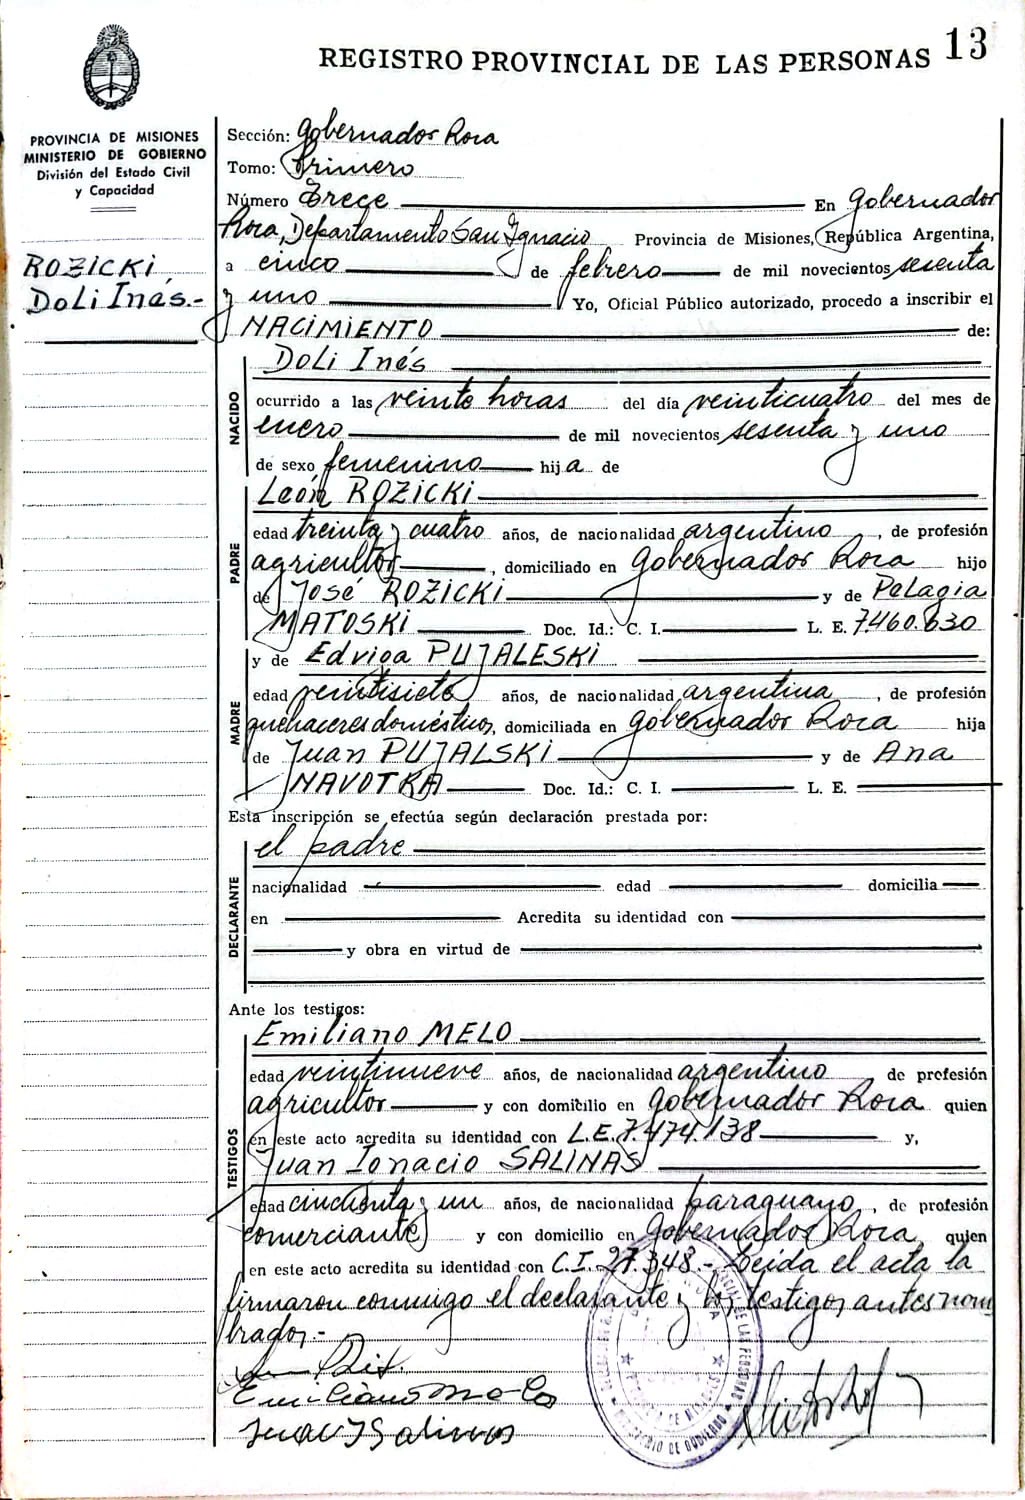 13
REGISTRO PROVINCIAL DE LAS PERSONAS
PROVINCIA DE MISIONES
MINISTERIO DE GOBIERNO
División del Estado Civil
y Capacidad
ROZICKI
DoLi Inés.-
Sección: Gobernador Roca
Tomo: Primero
Número Trece En Gobernador
Roca, Departamento San Ignacio Provincia de Misiones, República Argentina,
a cinco de febrero de mil novecientos sesenta
y uno Yo, Oficial Público autorizado, procedo a inscribir el
NACIMIENTO de:
DoLi Inés
NACIDO
ocurrido a las veinte horas del día veinticuatro del mes de
enero de mil novecientos sesenta y uno
de sexo femenino hija de
León ROZICKI
PADRE
edad treinta y cuatro años, de nacionalidad argentino, de profesión
agricultor, domiciliado en Gobernador Roca hijo
de José ROZICKI y de Pelagia
MATOSKI Doc. Id.: C. I. L. E. 7.460.630
y de Edviga PUJALESKI
MADRE
edad veintisiete años, de nacionalidad argentina, de profesión
quehaceres domésticos, domiciliada en Gobernador Roca hija
de Juan PUJALSKI y de Ana
NAVOTKA Doc. Id.: C. I. L. E.
Esta inscripción se efectúa según declaración prestada por:
el padre
DECLARANTE
nacionalidad edad domicilia
en Acredita su identidad con
y obra en virtud de
Ante los testigos:
Emiliano MELO
TESTIGOS
edad veintinueve años, de nacionalidad argentino de profesión
agricultor y con domicilio en Gobernador Roca quien
en este acto acredita su identidad con L.E. 7.474.138 y,
Juan Ignacio SALINAS
edad cincuenta y un años, de nacionalidad paraguayo, de profesión
comerciante y con domicilio en Gobernador Roca, quien
en este acto acredita su identidad con C.I. 27.348.- Leída el acta la
firmaron conmigo el declarante y los testigos antes nom
brados.-
Emiliano Melo
Juan I Salinas
MINISTERIO DE GOBIERNO